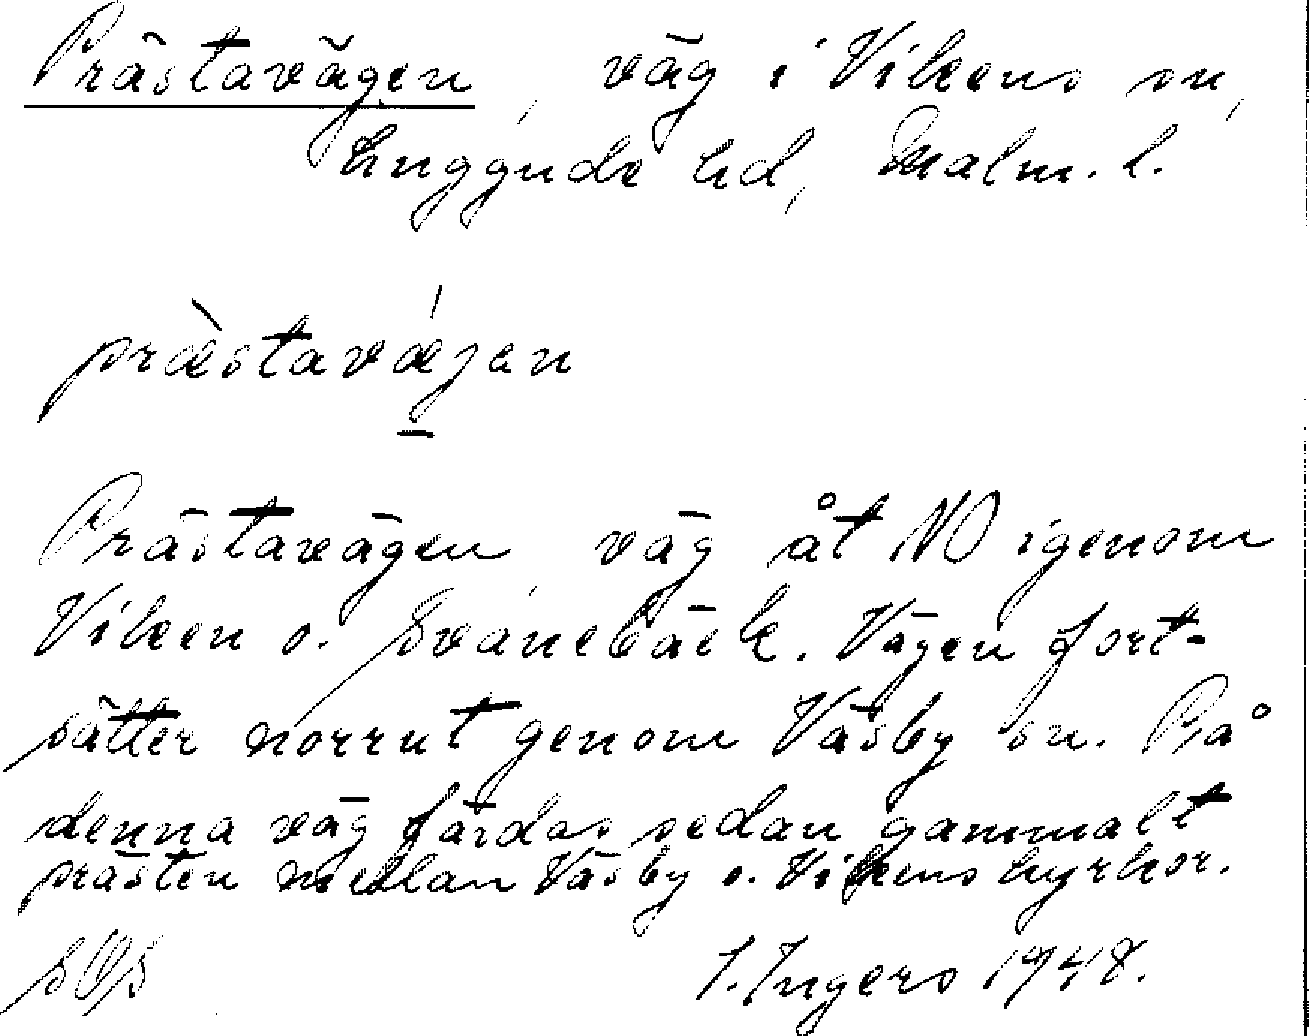 Prästavägen, väg i Vikens sn,
Luggude hd, Malm. l.
præ̀stavǽjen
Prästavägen, väg åt NO igenom
Viken o. Svanebäck. Vägen fort-
sätter norrut genom Väsby sn. På
denna väg färdas sedan gammalt
prästen mellan Väsby o. Vikens kyrkor.
SOS I. Ingers 1948.